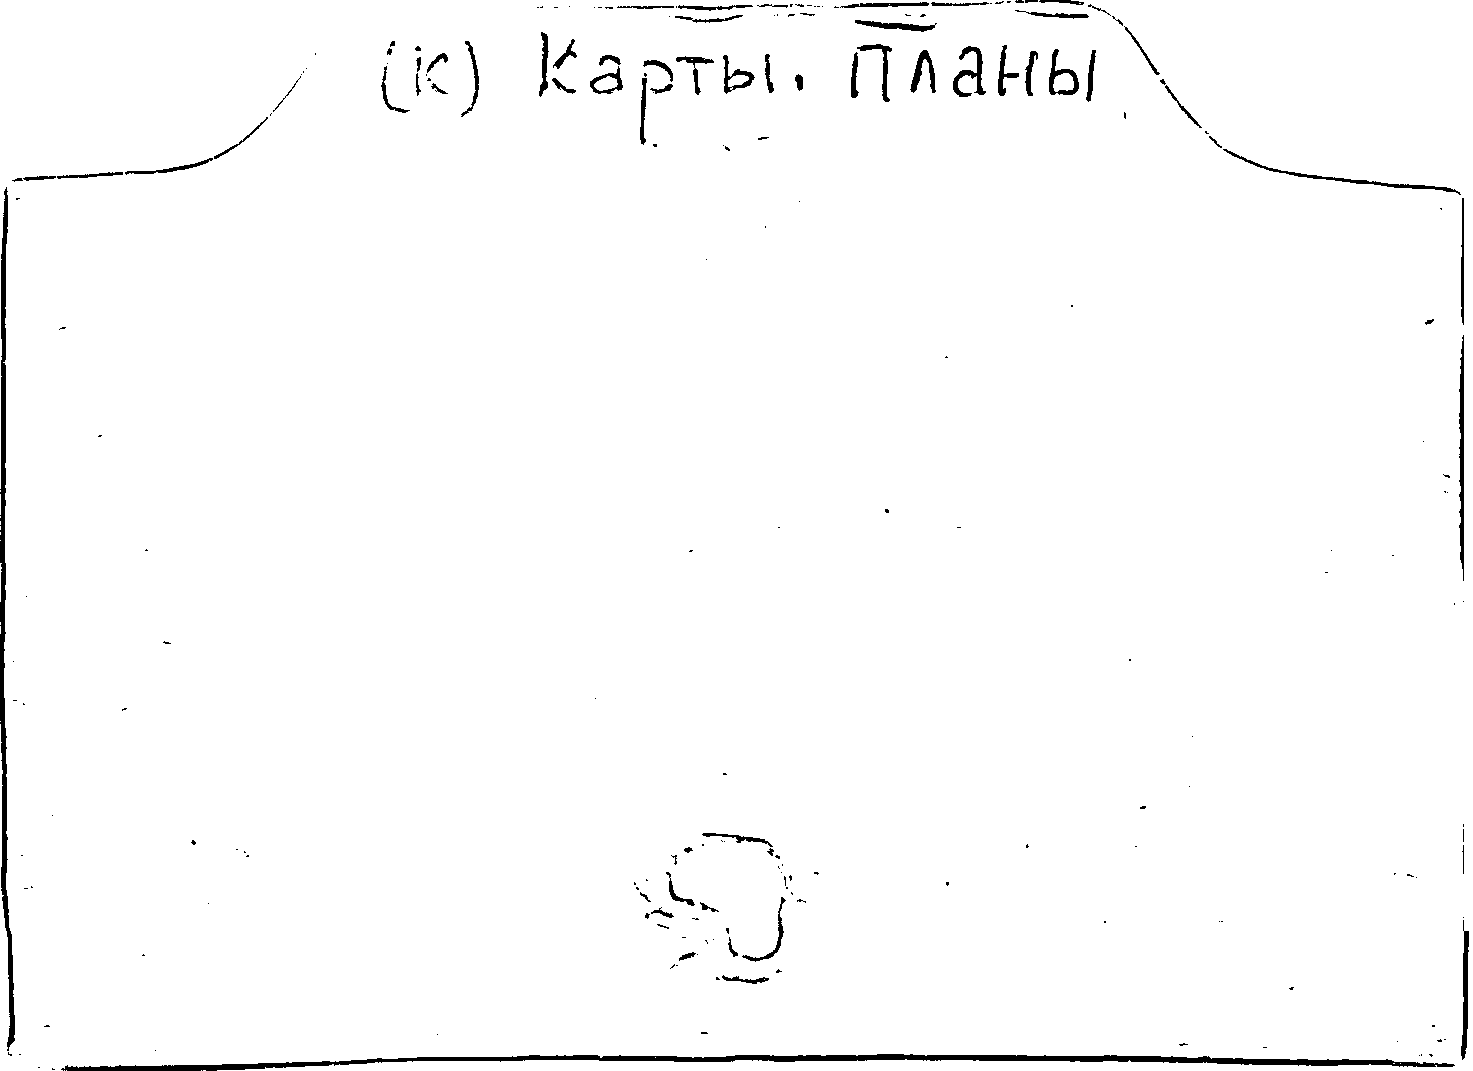 (К) Карты. Планы